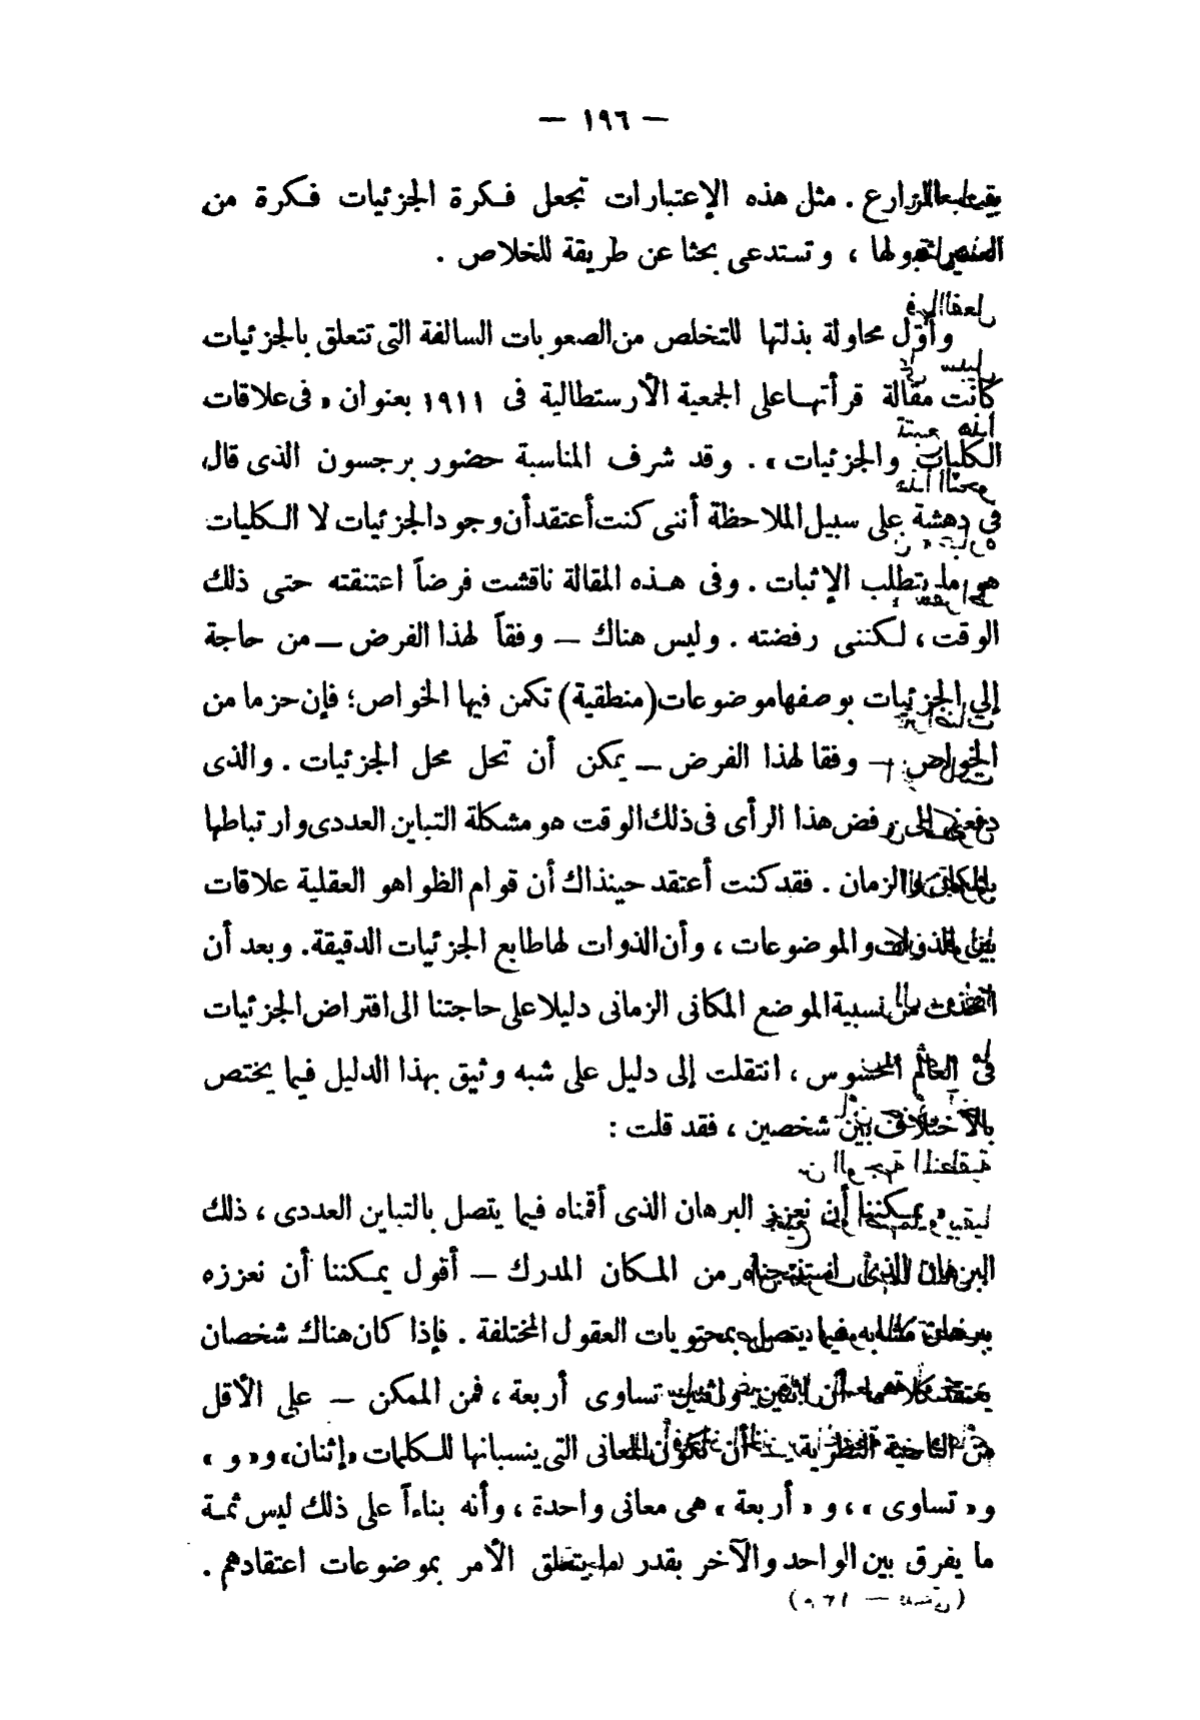 — ١٩٦ —
المزارع . مثل هذه الإعتبارات تجعل فكرة الجزئيات فكرة من
العسير قبولها ، وتستدعى بحثا عن طريقة للخلاص .
وأول محاولة بذلتها للتخلص من الصعوبات السالفة التى تتعلق بالجزئيات
كانت مقالة قرأتها على الجمعية الأرستطالية فى ١٩١١ بعنوان « فى علاقات
الكليات والجزئيات » . وقد شرف المناسبة حضور برجسون الذى قال
فى دهشة على سبيل الملاحظة أننى كنت أعتقد أن وجود الجزئيات لا الكليات
هو ما يتطلب الإثبات . وفى هذه المقالة ناقشت فرضاً اعتنقته حتى ذلك
الوقت ، لكننى رفضته . وليس هناك — وفقاً لهذا الفرض — من حاجة
إلى الجزئيات بوصفها موضوعات (منطقية) تكمن فيها الخواص ؛ فإن حزما من
الخواص — وفقا لهذا الفرض — يمكن أن تحل محل الجزئيات . والذى
دفعنى إلى رفض هذا الرأى فى ذلك الوقت هو مشكلة التباين العددى وارتباطها
بالمكان والزمان . فقد كنت أعتقد حينذاك أن قوام الظواهر العقلية علاقات
بين الذوات والموضوعات ، وأن الذوات لها طابع الجزئيات الدقيقة . وبعد أن
اتخذت من نسبية الموضع المكانى الزمانى دليلا على حاجتنا الى افتراض الجزئيات
فى العالم المحسوس ، انتقلت إلى دليل على شبه وثيق بهذا الدليل فيما يختص
بالاختلاف بين شخصين ، فقد قلت :
« يمكننا أن نعزز البرهان الذى أقمناه فيما يتصل بالتباين العددى ، ذلك
البرهان الذى استنتجناه من المكان المدرك — أقول يمكننا أن نعززه
ببرهان مشابه فيما يتصل بمحتويات العقول المختلفة . فإذا كان هناك شخصان
يعتقد كلاهما أن اثنين واثنين تساوى أربعة ، فمن الممكن — على الأقل
من الناحية النظرية — أن تكون المعانى التى ينسبانها للكلمات «إثنان» و « و »
و « تساوى » ، و « أربعة » هى معانى واحدة ، وأنه بناءاً على ذلك ليس ثمة
ما يفرق بين الواحد والآخر بقدر ما يتعلق الأمر بموضوعات اعتقادهم .